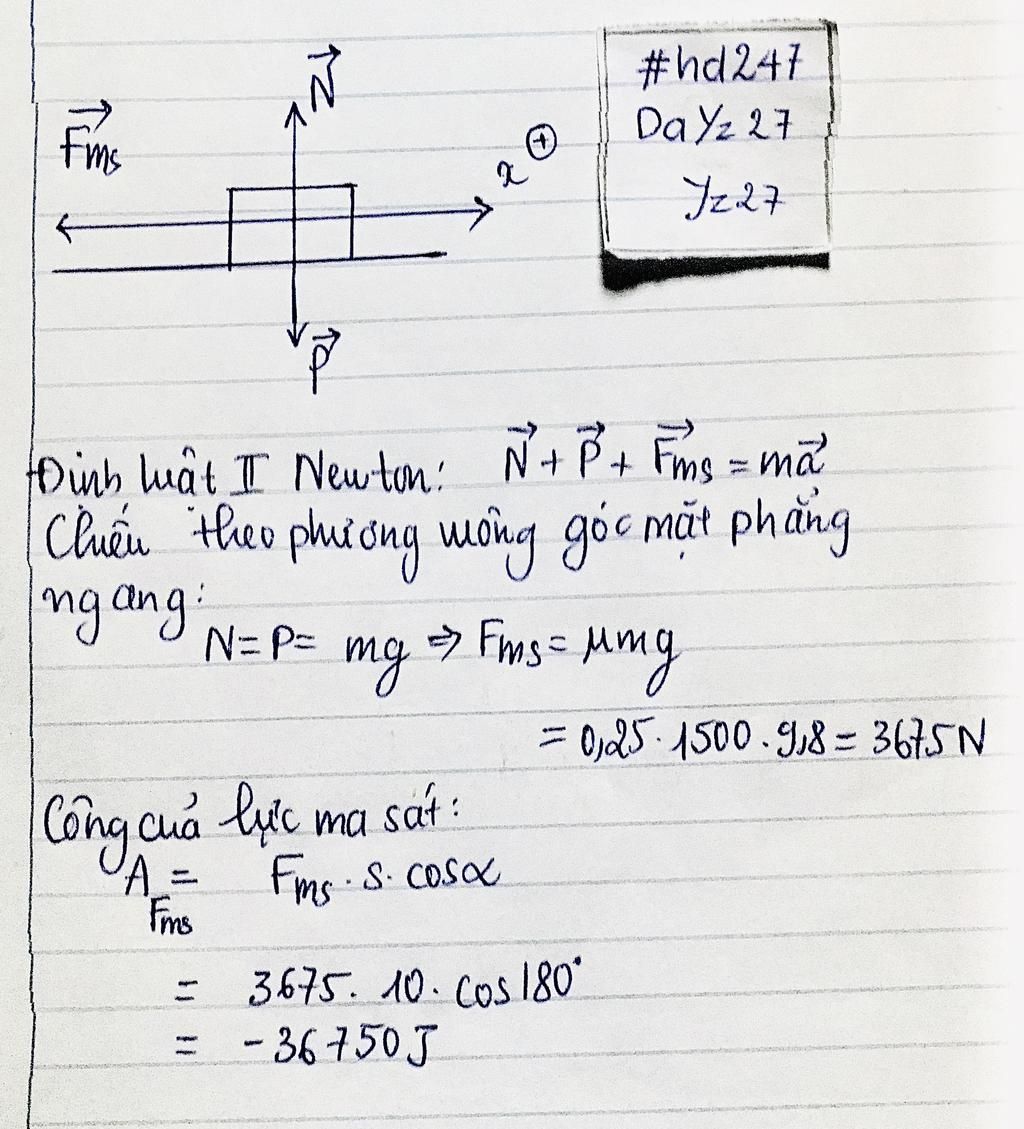 N⃗
F⃗ms
x ⊕
P⃗
#hd247
DaYz27
Yz27
Định luật II Newton: N⃗ + P⃗ + F⃗ms = ma⃗
Chiếu theo phương vuông góc mặt phẳng
ngang:
N = P = mg ⇒ Fms = μmg
= 0,25 . 1500 . 9,8 = 3675 N
Công của lực ma sát:
A_Fms = Fms . s . cosα
= 3675 . 10 . cos180°
= -36750 J